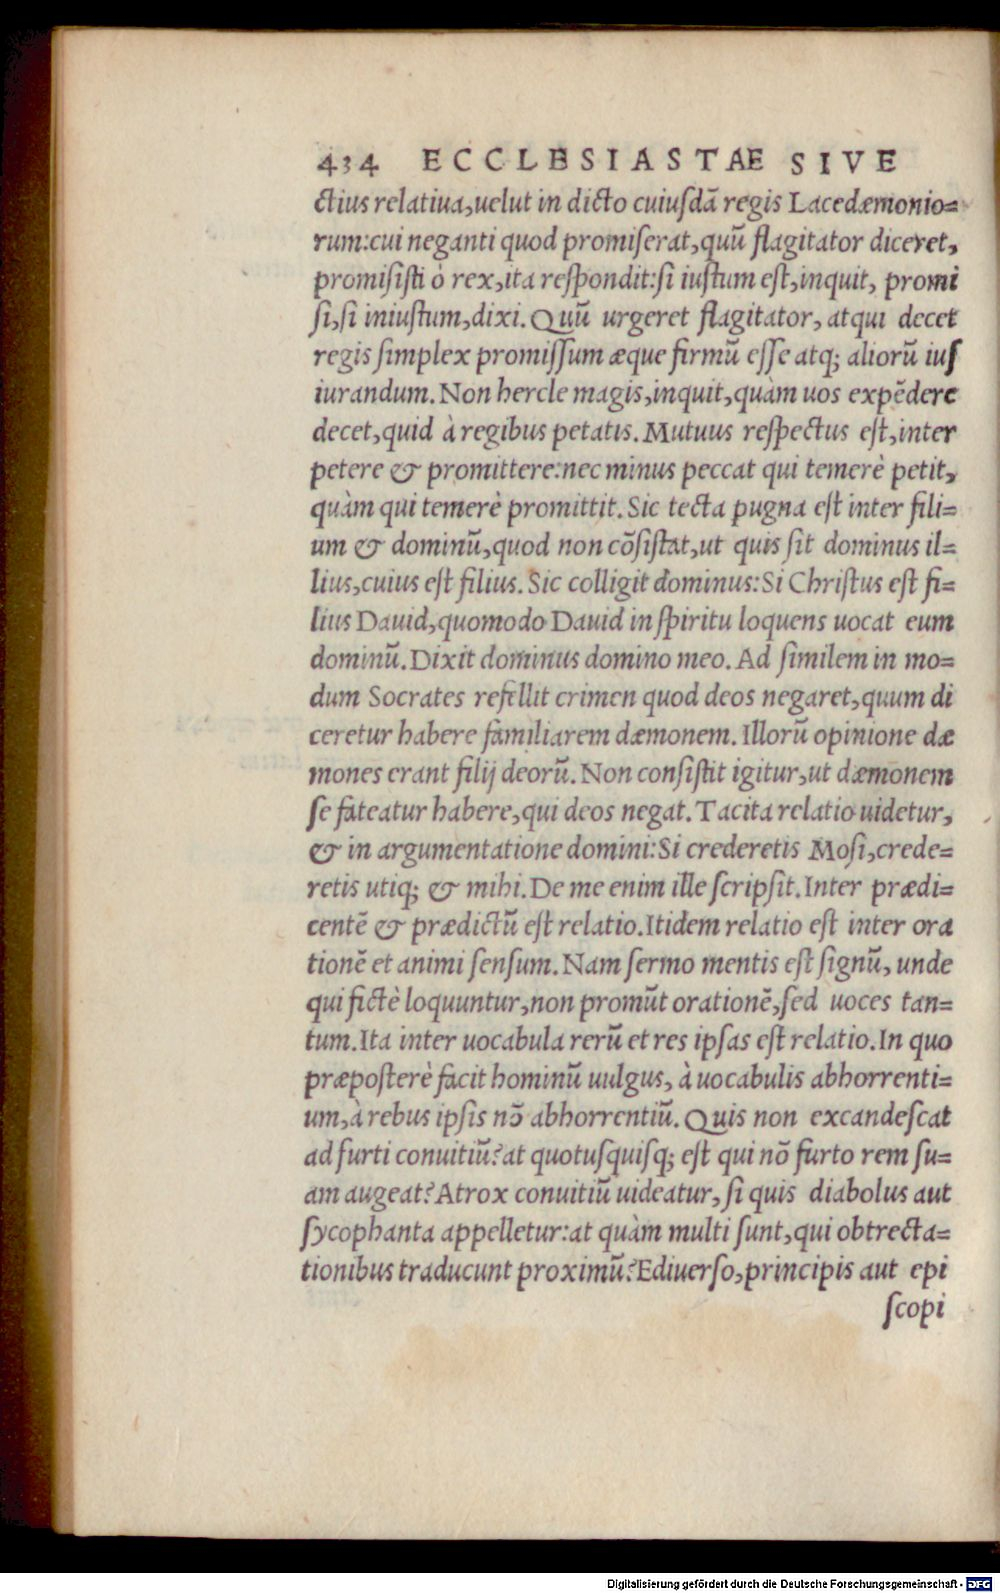 434 ECCLESIASTAE SIVE
ctius relatiua, uelut in dicto cuiusdā regis Lacedæmonio=
rum: cui neganti quod promiserat, quū flagitator diceret,
promisisti ô rex, ita respondit: si iustum est, inquit, promi
si, si iniustum, dixi. Quū urgeret flagitator, atqui decet
regis simplex promissum æque firmū esse atq; aliorū ius
iurandum. Non hercle magis, inquit, quàm uos expēdere
decet, quid à regibus petatis. Mutuus respectus est, inter
petere & promittere: nec minus peccat qui temerè petit,
quàm qui temerè promittit. Sic tecta pugna est inter fili=
um & dominū, quod non cōsistat, ut quis sit dominus il=
lius, cuius est filius. Sic colligit dominus: Si Christus est fi=
lius Dauid, quomodo Dauid in spiritu loquens uocat eum
dominū. Dixit dominus domino meo. Ad similem in mo=
dum Socrates refellit crimen quod deos negaret, quum di
ceretur habere familiarem dæmonem. Illorū opinione dæ
mones erant filij deorū. Non consistit igitur, ut dæmonem
se fateatur habere, qui deos negat. Tacita relatio uidetur,
& in argumentatione domini: Si crederetis Mosi, crede=
retis utiq; & mihi. De me enim ille scripsit. Inter prædi=
centē & prædictū est relatio. Itidem relatio est inter ora
tionē et animi sensum. Nam sermo mentis est signū, unde
qui fictè loquuntur, non promūt orationē, sed uoces tan=
tum. Ita inter uocabula rerū et res ipsas est relatio. In quo
præposterè facit hominū uulgus, à uocabulis abhorrenti=
um, à rebus ipsis nō abhorrentiū. Quis non excandescat
ad furti conuitiū? at quotusquisq; est qui nō furto rem su=
am augeat? Atrox conuitiū uideatur, si quis diabolus aut
sycophanta appelletur: at quàm multi sunt, qui obtrecta=
tionibus traducunt proximū? Ediuerso, principis aut epi
scopi
Digitalisierung gefördert durch die Deutsche Forschungsgemeinschaft - DFG